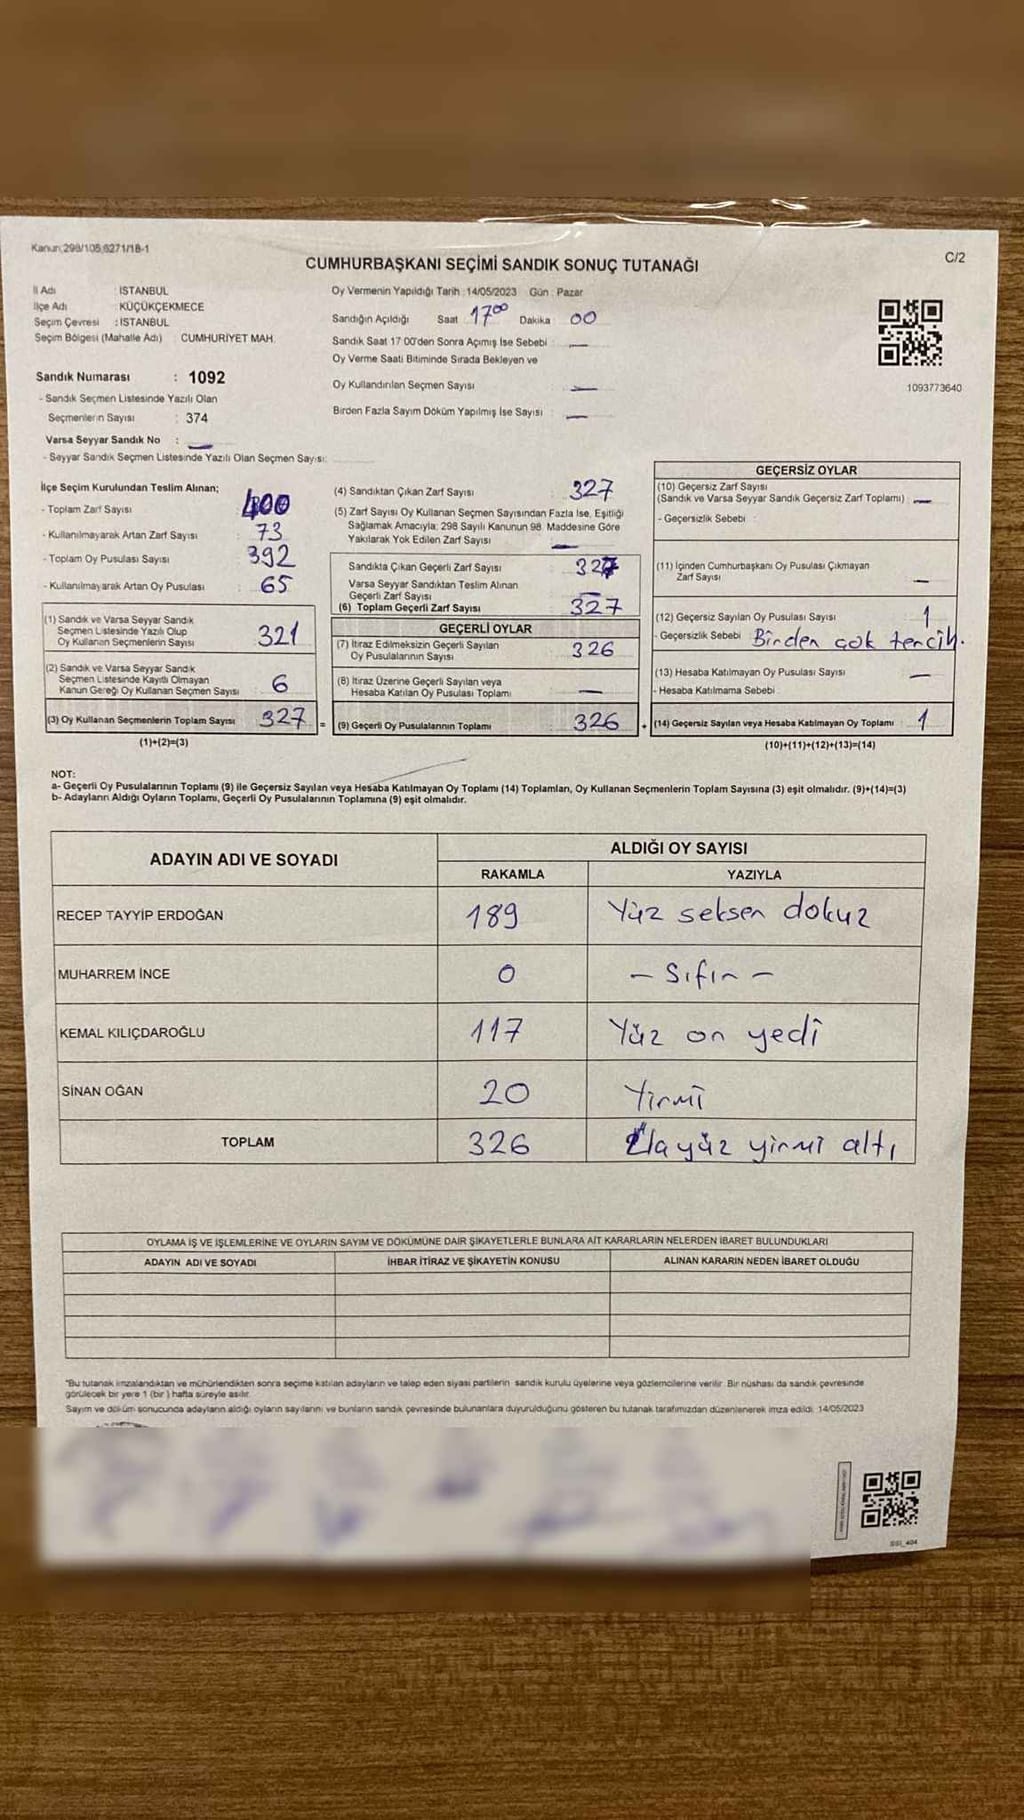 Kanun:298/105,6271/18-1
C/2
CUMHURBAŞKANI SEÇİMİ SANDIK SONUÇ TUTANAĞI
İl Adı : İSTANBUL
İlçe Adı : KÜÇÜKÇEKMECE
Seçim Çevresi : İSTANBUL
Seçim Bölgesi (Mahalle Adı) : CUMHURİYET MAH.
Sandık Numarası : 1092
- Sandık Seçmen Listesinde Yazılı Olan
Seçmenlerin Sayısı : 374
Varsa Seyyar Sandık No : —
- Seyyar Sandık Seçmen Listesinde Yazılı Olan Seçmen Sayısı:
Oy Vermenin Yapıldığı Tarih : 14/05/2023 Gün : Pazar
Sandığın Açıldığı Saat 17⁰⁰ Dakika 00
Sandık Saat 17:00'den Sonra Açımış İse Sebebi : —
Oy Verme Saati Bitiminde Sırada Bekleyen ve
Oy Kullandırılan Seçmen Sayısı : —
Birden Fazla Sayım Döküm Yapılmış İse Sayısı : —
1093773640
İlçe Seçim Kurulundan Teslim Alınan;
- Toplam Zarf Sayısı : 400
- Kullanılmayarak Artan Zarf Sayısı : 73
- Toplam Oy Pusulası Sayısı : 392
- Kullanılmayarak Artan Oy Pusulası : 65
(1) Sandık ve Varsa Seyyar Sandık
Seçmen Listesinde Yazılı Olup
Oy Kullanan Seçmenlerin Sayısı 321
(2) Sandık ve Varsa Seyyar Sandık
Seçmen Listesinde Kayıtlı Olmayan
Kanun Gereği Oy Kullanan Seçmen Sayısı 6
(3) Oy Kullanan Seçmenlerin Toplam Sayısı 327
(1)+(2)=(3)
(4) Sandıktan Çıkan Zarf Sayısı 327
(5) Zarf Sayısı Oy Kullanan Seçmen Sayısından Fazla İse, Eşitliği
Sağlamak Amacıyla; 298 Sayılı Kanunun 98. Maddesine Göre
Yakılarak Yok Edilen Zarf Sayısı —
Sandıkta Çıkan Geçerli Zarf Sayısı 327
Varsa Seyyar Sandıktan Teslim Alınan
Geçerli Zarf Sayısı —
(6) Toplam Geçerli Zarf Sayısı 327
GEÇERLİ OYLAR
(7) İtiraz Edilmeksizin Geçerli Sayılan
Oy Pusulalarının Sayısı 326
(8) İtiraz Üzerine Geçerli Sayılan veya
Hesaba Katılan Oy Pusulası Toplamı —
= (9) Geçerli Oy Pusulalarının Toplamı 326
GEÇERSİZ OYLAR
(10) Geçersiz Zarf Sayısı
(Sandık ve Varsa Seyyar Sandık Geçersiz Zarf Toplamı) —
- Geçersizlik Sebebi :
(11) İçinden Cumhurbaşkanı Oy Pusulası Çıkmayan
Zarf Sayısı —
(12) Geçersiz Sayılan Oy Pusulası Sayısı 1
- Geçersizlik Sebebi Birden çok tercih.
(13) Hesaba Katılmayan Oy Pusulası Sayısı —
- Hesaba Katılmama Sebebi :
+ (14) Geçersiz Sayılan veya Hesaba Katılmayan Oy Toplamı 1
(10)+(11)+(12)+(13)=(14)
NOT:
a- Geçerli Oy Pusulalarının Toplamı (9) ile Geçersiz Sayılan veya Hesaba Katılmayan Oy Toplamı (14) Toplamları, Oy Kullanan Seçmenlerin Toplam Sayısına (3) eşit olmalıdır. (9)+(14)=(3)
b- Adayların Aldığı Oyların Toplamı, Geçerli Oy Pusulalarının Toplamına (9) eşit olmalıdır.
ADAYIN ADI VE SOYADI
ALDIĞI OY SAYISI
RAKAMLA YAZIYLA
RECEP TAYYİP ERDOĞAN 189 Yüz seksen dokuz
MUHARREM İNCE 0 - Sıfır -
KEMAL KILIÇDAROĞLU 117 Yüz on yedi
SİNAN OĞAN 20 Yirmi
TOPLAM 326 yüz yirmi altı
OYLAMA İŞ VE İŞLEMLERİNE VE OYLARIN SAYIM VE DÖKÜMÜNE DAİR ŞİKAYETLERLE BUNLARA AİT KARARLARIN NELERDEN İBARET BULUNDUKLARI
ADAYIN ADI VE SOYADI İHBAR İTİRAZ VE ŞİKAYETİN KONUSU ALINAN KARARIN NEDEN İBARET OLDUĞU
*Bu tutanak imzalandıktan ve mühürlendikten sonra seçime katılan adayların ve talep eden siyasi partilerin sandık kurulu üyelerine veya gözlemcilerine verilir. Bir nüshası da sandık çevresinde
görülecek bir yere 1 (bir) hafta süreyle asılır.
Sayım ve döküm sonucunda adayların aldığı oyların sayılarını ve bunların sandık çevresinde bulunanlara duyurulduğunu gösteren bu tutanak tarafımızdan düzenlenerek imza edildi. 14/05/2023
SSI_404